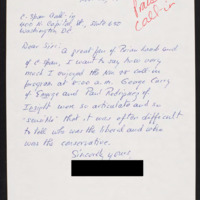 C-Span Call-in
400 N. Capitol St., Suite 650
Washington DC
Dear Sirs:
a great fan of Brian Lamb and
of C-Span, I want to say how very
much I enjoyed the
program at 8:00 a.m. George Curry
of Emerge and Paul Rodriguez of
Insight were so articulate and so
'sensible' that it was often difficult
to tell who was the liberal and who
was the conservative.
Sincerely yours
call-in